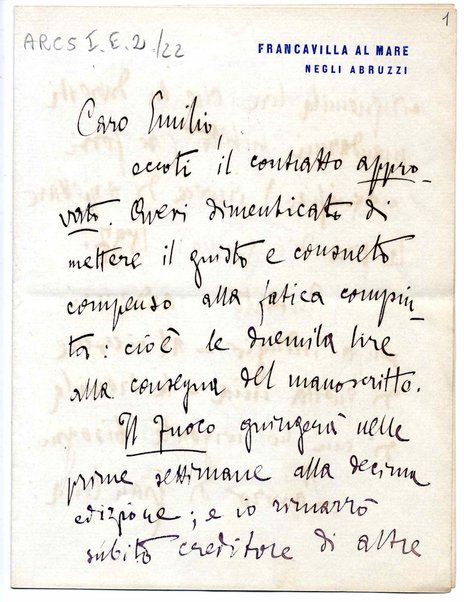 1
ARCS I. E. 2/22
FRANCAVILLA AL MARE
NEGLI ABRUZZI
Caro Emilio,
eccoti il contratto appro-
vato. Averi dimenticato di
mettere il giusto e consueto
compenso alla fatica compiu-
ta: cioè le duemila lire
alla consegna del manoscritto.
Il Fuoco giungerà nelle
prime settimane alla decima
edizione; e io rimarrò
sùbito creditore di altre